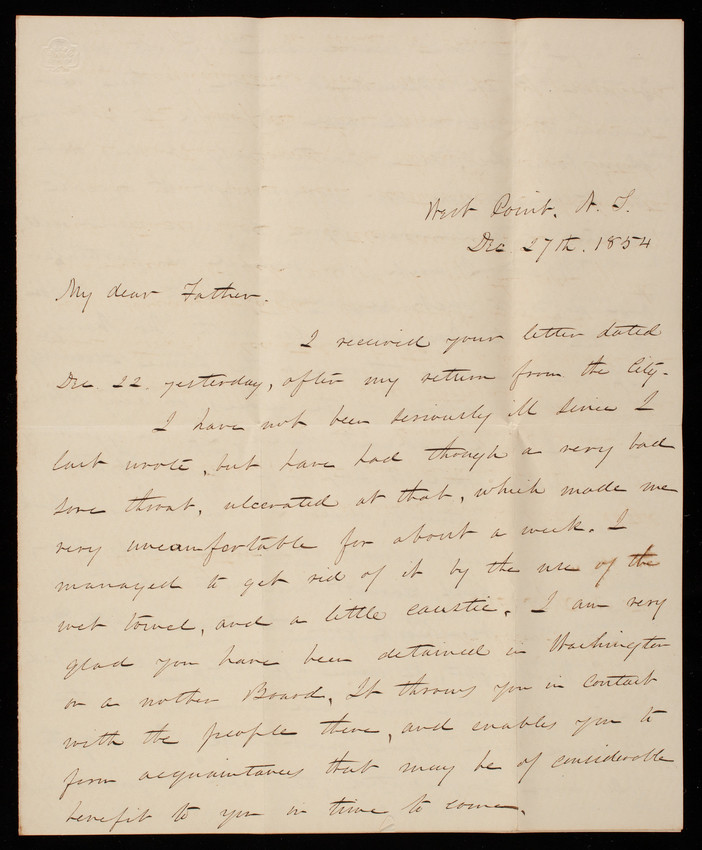 West Point, N. Y.
Dec 27th. 1854
My dear Father.
I received your letter dated
Dec 22. yesterday, after my return from the City.
I have not been seriously ill since I
last wrote, but have had though a very bad
sore throat, ulcerated at that, which made me
very uncomfortable for about a week. I
managed to get rid of it by the use of the
wet towel, and a little caustic. I am very
glad you have been detained in Washington
on a nother Board. It throws you in contact
with the people there, and enables you to
form acquaintances that may be of considerable
benefit to you in time to come.